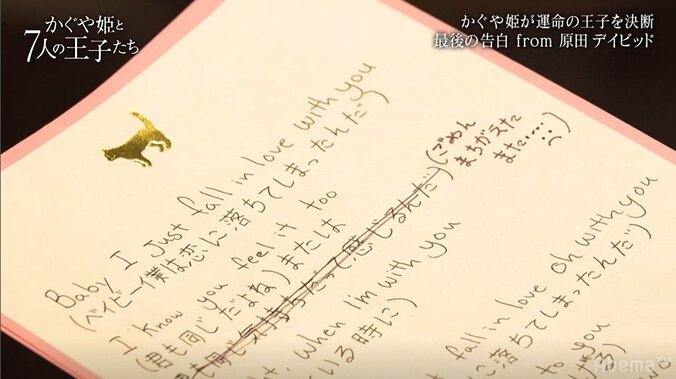 かぐや姫と
7人の王子たち
かぐや姫が運命の王子を決断
最後の告白 from 原田デイビッド
Baby I Just fall in love with you
(ベイビー僕は恋に落ちてしまったんだ)
I know you feel it too
(君も同じだよね)または
も同じ気持ちだって感じるんだ)
(ごめん
まちがえた
また……
when I'm with you
ている時に)
fall in love oh with you
に落ちてしまったんだ)
to you
AbemaTV